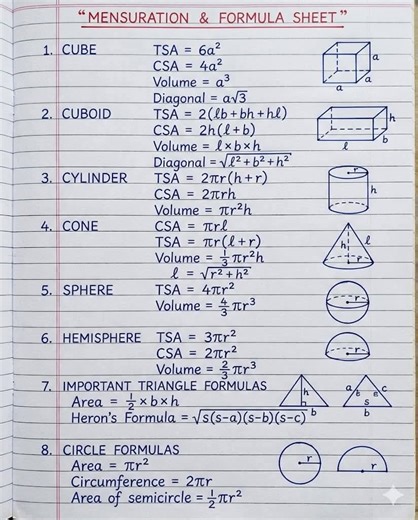 “MENSURATION & FORMULA SHEET”
1. CUBE TSA = 6a²
CSA = 4a²
Volume = a³
Diagonal = a√3
a
a
a
2. CUBOID TSA = 2(ℓb + bh + hℓ)
CSA = 2h(ℓ + b)
Volume = ℓ × b × h
Diagonal = √ℓ² + b² + h²
h
b
ℓ
3. CYLINDER TSA = 2πr(h + r)
CSA = 2πrh
Volume = πr²h
r
h
4. CONE CSA = πrℓ
TSA = πr(ℓ + r)
Volume = 1/3 πr²h
ℓ = √r² + h²
h
ℓ
r
5. SPHERE TSA = 4πr²
Volume = 4/3 πr³
r
6. HEMISPHERE TSA = 3πr²
CSA = 2πr²
Volume = 2/3 πr³
r
7. IMPORTANT TRIANGLE FORMULAS
Area = 1/2 × b × h
Heron's Formula = √s(s-a)(s-b)(s-c)
h
b
a
c
s
b
8. CIRCLE FORMULAS
Area = πr²
Circumference = 2πr
Area of semicircle = 1/2 πr²
r
r